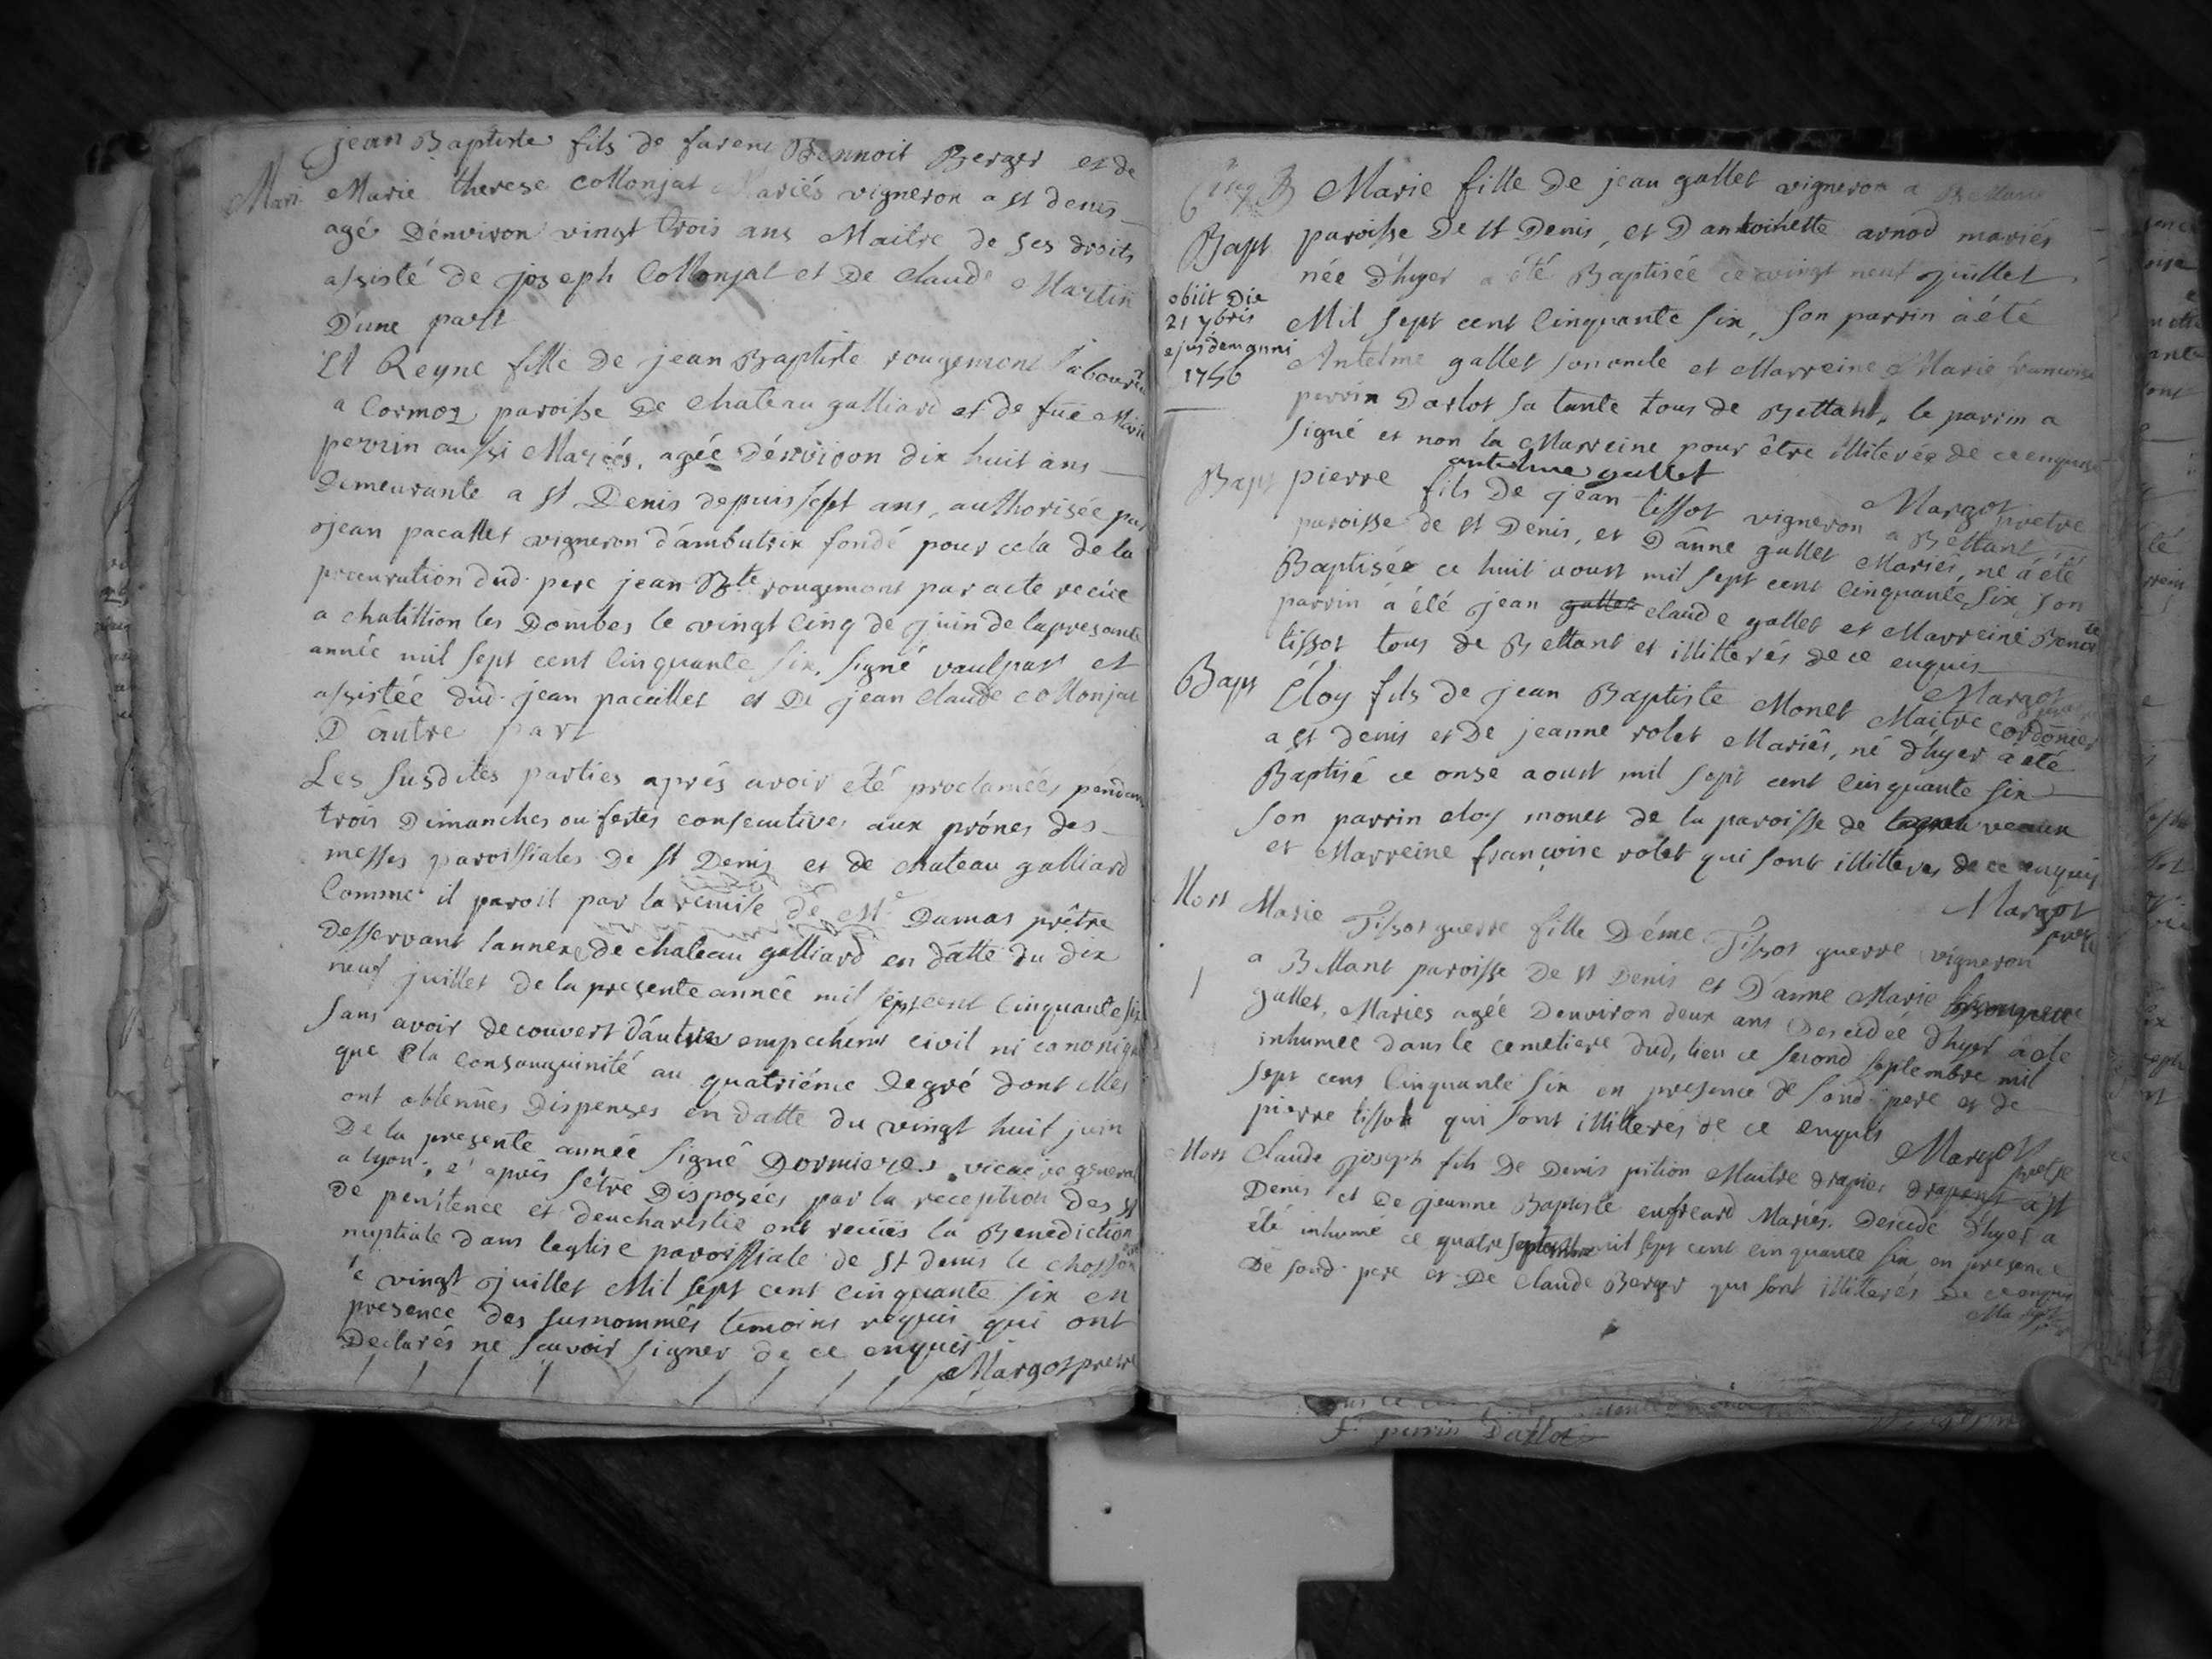 jean Baptiste fils de furent Bennoit Berger et de
Mari Marie therese collonjat Mariés vigneron a st denis
agé Dénviron vingt trois ans Maitre de ses droits
assisté de joseph Collonjat et De claude Martin
D'une part
Et Reyne fille de jean Baptiste rougemont laboureur
a Cormoz paroisse De chateau galliard et de füe Marie
perrin aussi Mariés, agée Dénviron dix huit ans
Demeurante a st Denis depuis sept ans, authorisée par
jean pacallet vigneron d'ambutrix fondé pour cela de la
procuration dud. pere jean Bte rougemont par acte recüe
a chatillion les Dombes le vingt Cinq de juin de la presente
année mil sept cent Cinquante six, signé vaulpast et
assistée dud. jean pacallet et De jean claude collonjat
D'autre part
Les susdites parties aprés avoir été proclamées pendant
trois Dimanches ou festes consecutives aux prônes des
messes paroissiales De st Denis et de chateau galliard
Comme il paroit par la remise de Mre Dumas prêtre
desservant lannexe de chateau galliard en datte du dix
neuf juillet de la presente année mil sept cent Cinquante six
sans avoir decouvert d'autres empechemt civil ni cononique
que la consanguinité au quatriéme degré dont elles
ont obtenües Dispenses en datte du vingt huit juin
De la presente année signé Dormieres vicaire general
a lyon; et aprés s'étre Disposées par la reception des st
de penitence et deucharistie ont recües la Benediction
nuptiale dans leglise paroissiale de st denis le chosson
le vingt juillet Mil sept cent cinquante six en
presence des susnommés temoins requis qui ont
Declarés ne scavoir signer de ce enquis
Margot pretre
Marie fille De jean gallet vigneron a Bettant
Bapt paroisse De st Denis, et D'antoinette arnod mariés
née d'hyer a été Baptisée ce vingt neuf juillet
obiit Die
21 7bris
ejusdem anni
1756
Mil sept cent Cinquante six, son parrin à été
Antelme gallet son oncle et Marreine Marie francoise
perrin Darlot sa tante tous de Bettant, le parrin a
signé et non la Marreine pour être illiterée de ce enquise
antelme gallet
Margot pretre
Bapt pierre fils de jean tissot vigneron a Bettant
paroisse de st Denis, et D'anne gallet Mariés, né à été
Baptisée ce huit aoust mil sept cent Cinquante six, son
parrin a été jean gallet claude gallet et Marreine Benoite
tissot tous de Bettant et illitterés de ce enquis
Margot
Bapt Eloy fils de jean Baptiste Monet Maitre cordonier
a st denis et De jeanne rolet Mariés, né d'hyer à été
Baptisé ce onse aoust mil sept cent Cinquante six
son parrin eloy monet de la paroisse de veaux
et Marreine françoise rolet qui sont illitteres de ce enquis
Margot pretre
Mort Marie Tissot guerre fille D'éme Tissot guerre vigneron
a Bettant paroisse De st Denis et D'anne Marie
gallet, Mariés agée Denviron deux ans Decedée d'hyer à été
inhumée dans le cemetiere dud. lieu ce second septembre mil
sept cens Cinquante six en presence de sond. pere et de
pierre tissot qui sont illitterés de ce enquis
Margot pretre
Mort Claude joseph fils De Denis pition Maitre drapier drapant a st
Denis et De jeanne Baptiste Mariés. Decedé d'hyer a
été inhumé ce quatre septembre mil sept cent cinquante six en presence
De sond. pere et De claude Berger qui sont illitterés De ce enquis
Margot
F. perrin Darlot